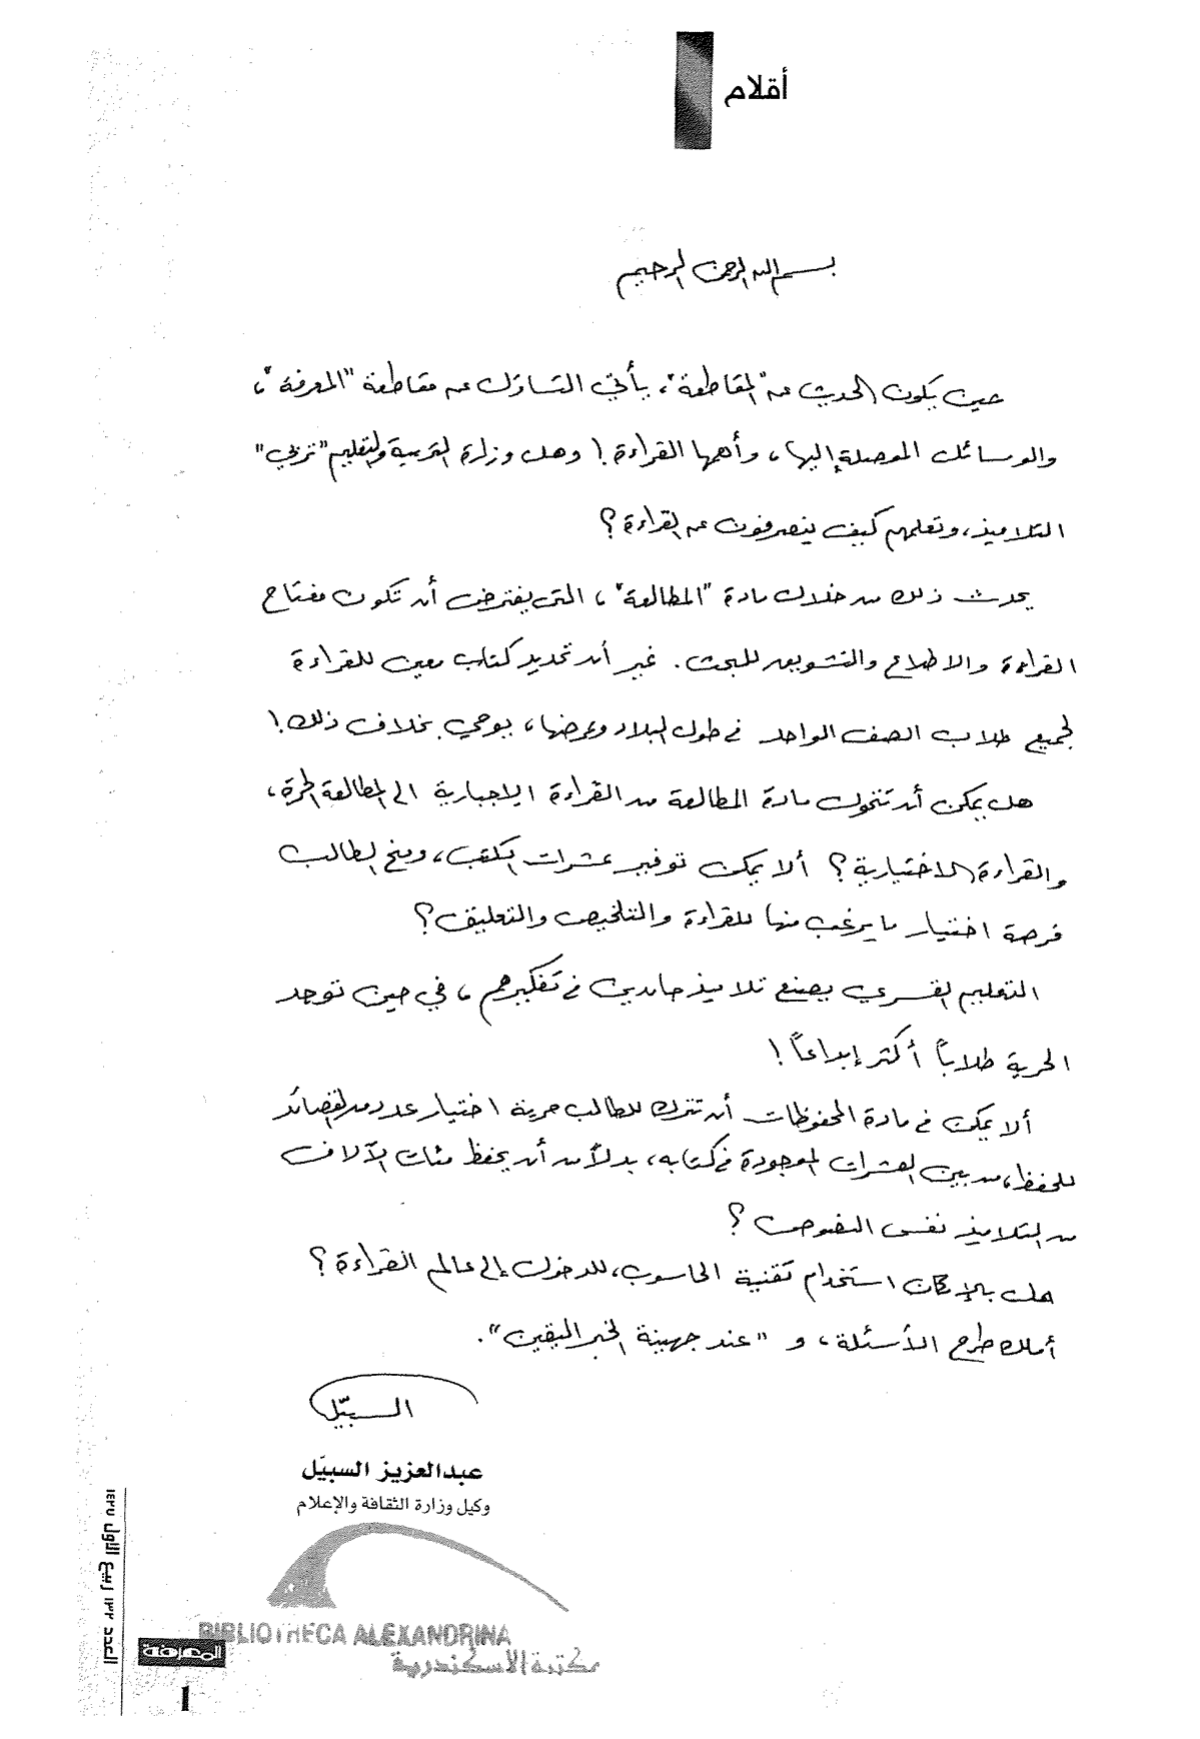 أقلام
بسم الله الرحمن الرحيم
حين يكون الحديث عن "المقاطعة"، يأتي التساؤل عن مقاطعة "المعرفة"،
والوسائل الموصلة إليها، وأهمها القراءة! وهل وزارة التربية والتعليم "تربي"
التلاميذ، وتعلمهم كيف ينصرفون عن القراءة؟
يحدث ذلك من خلال مادة "المطالعة"، التي يفترض أن تكون مفتاح
القراءة والاطلاع والتشويق للبحث. غير أن تحديد كتاب معين للقراءة
لجميع طلاب الصف الواحد في طول البلاد وعرضها، يوحي بخلاف ذلك!
هل يمكن أن تتحول مادة المطالعة من القراءة الإجبارية الى المطالعة الحرة،
والقراءة الاختيارية؟ ألا يمكن توفير عشرات الكتب، ومنح الطالب
فرصة اختيار ما يرغب منها للقراءة والتلخيص والتعليق؟
التعليم القسري يصنع تلاميذ جامدين في تفكيرهم، في حين توجد
الحرية طلاباً أكثر إبداعاً!
ألا يمكن في مادة المحفوظات أن تترك للطالب حرية اختيار عدد من القصائد
للحفظ، من بين العشرات الموجودة في كتابه، بدلاً من أن يحفظ مئات الآلاف
من التلاميذ نفس النصوص؟
هل بالإمكان استخدام تقنية الحاسوب، للدخول إلى عالم القراءة؟
أملك طرح الأسئلة، و "عند جهينة الخبر اليقين".
السبيّل
عبدالعزيز السبيّل
وكيل وزارة الثقافة والإعلام
BIBLIOTHECA ALEXANDRINA
مكتبة الاسكندرية
المعرفة
١
العدد ١٣٢ ربيع الأول ١٤٢٧